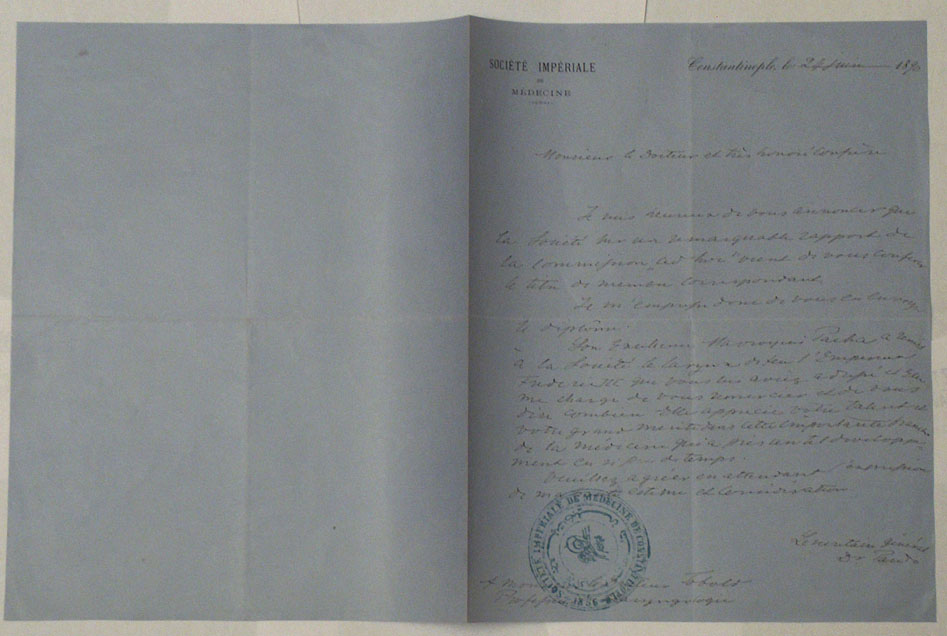 SOCIÉTÉ IMPÉRIALE
DE
MÉDECINE
Constantinople, le 24 Juin 1890
Monsieur le Docteur et très honoré Confrère
Je viens de vous annoncer que
la Société sur un remarquable rapport de
la Commission "ad hoc" vient de vous conférer
le titre de membre correspondant.
Je m'empresse donc de vous en envoyer
le diplôme.
Son Excellence Mavroyeni Pacha a remis
à la Société le larynx de feu l'Empereur
Frédéric III que vous lui avez adressé et Elle
me charge de vous remercier et de vous
dire combien Elle apprécie votre talent et
votre grand mérite dans cette importante branche
de la médecine qui a pris un tel développe-
ment en si peu de temps.
Veuillez agréer en attendant l'expression
de ma estime et considération
SOCIÉTÉ IMPÉRIALE DE MÉDECINE DE CONSTANTINOPLE
1856
Le secrétaire général
Dr
A Monsieur le Docteur Tobold
Professeur de Laryngologie